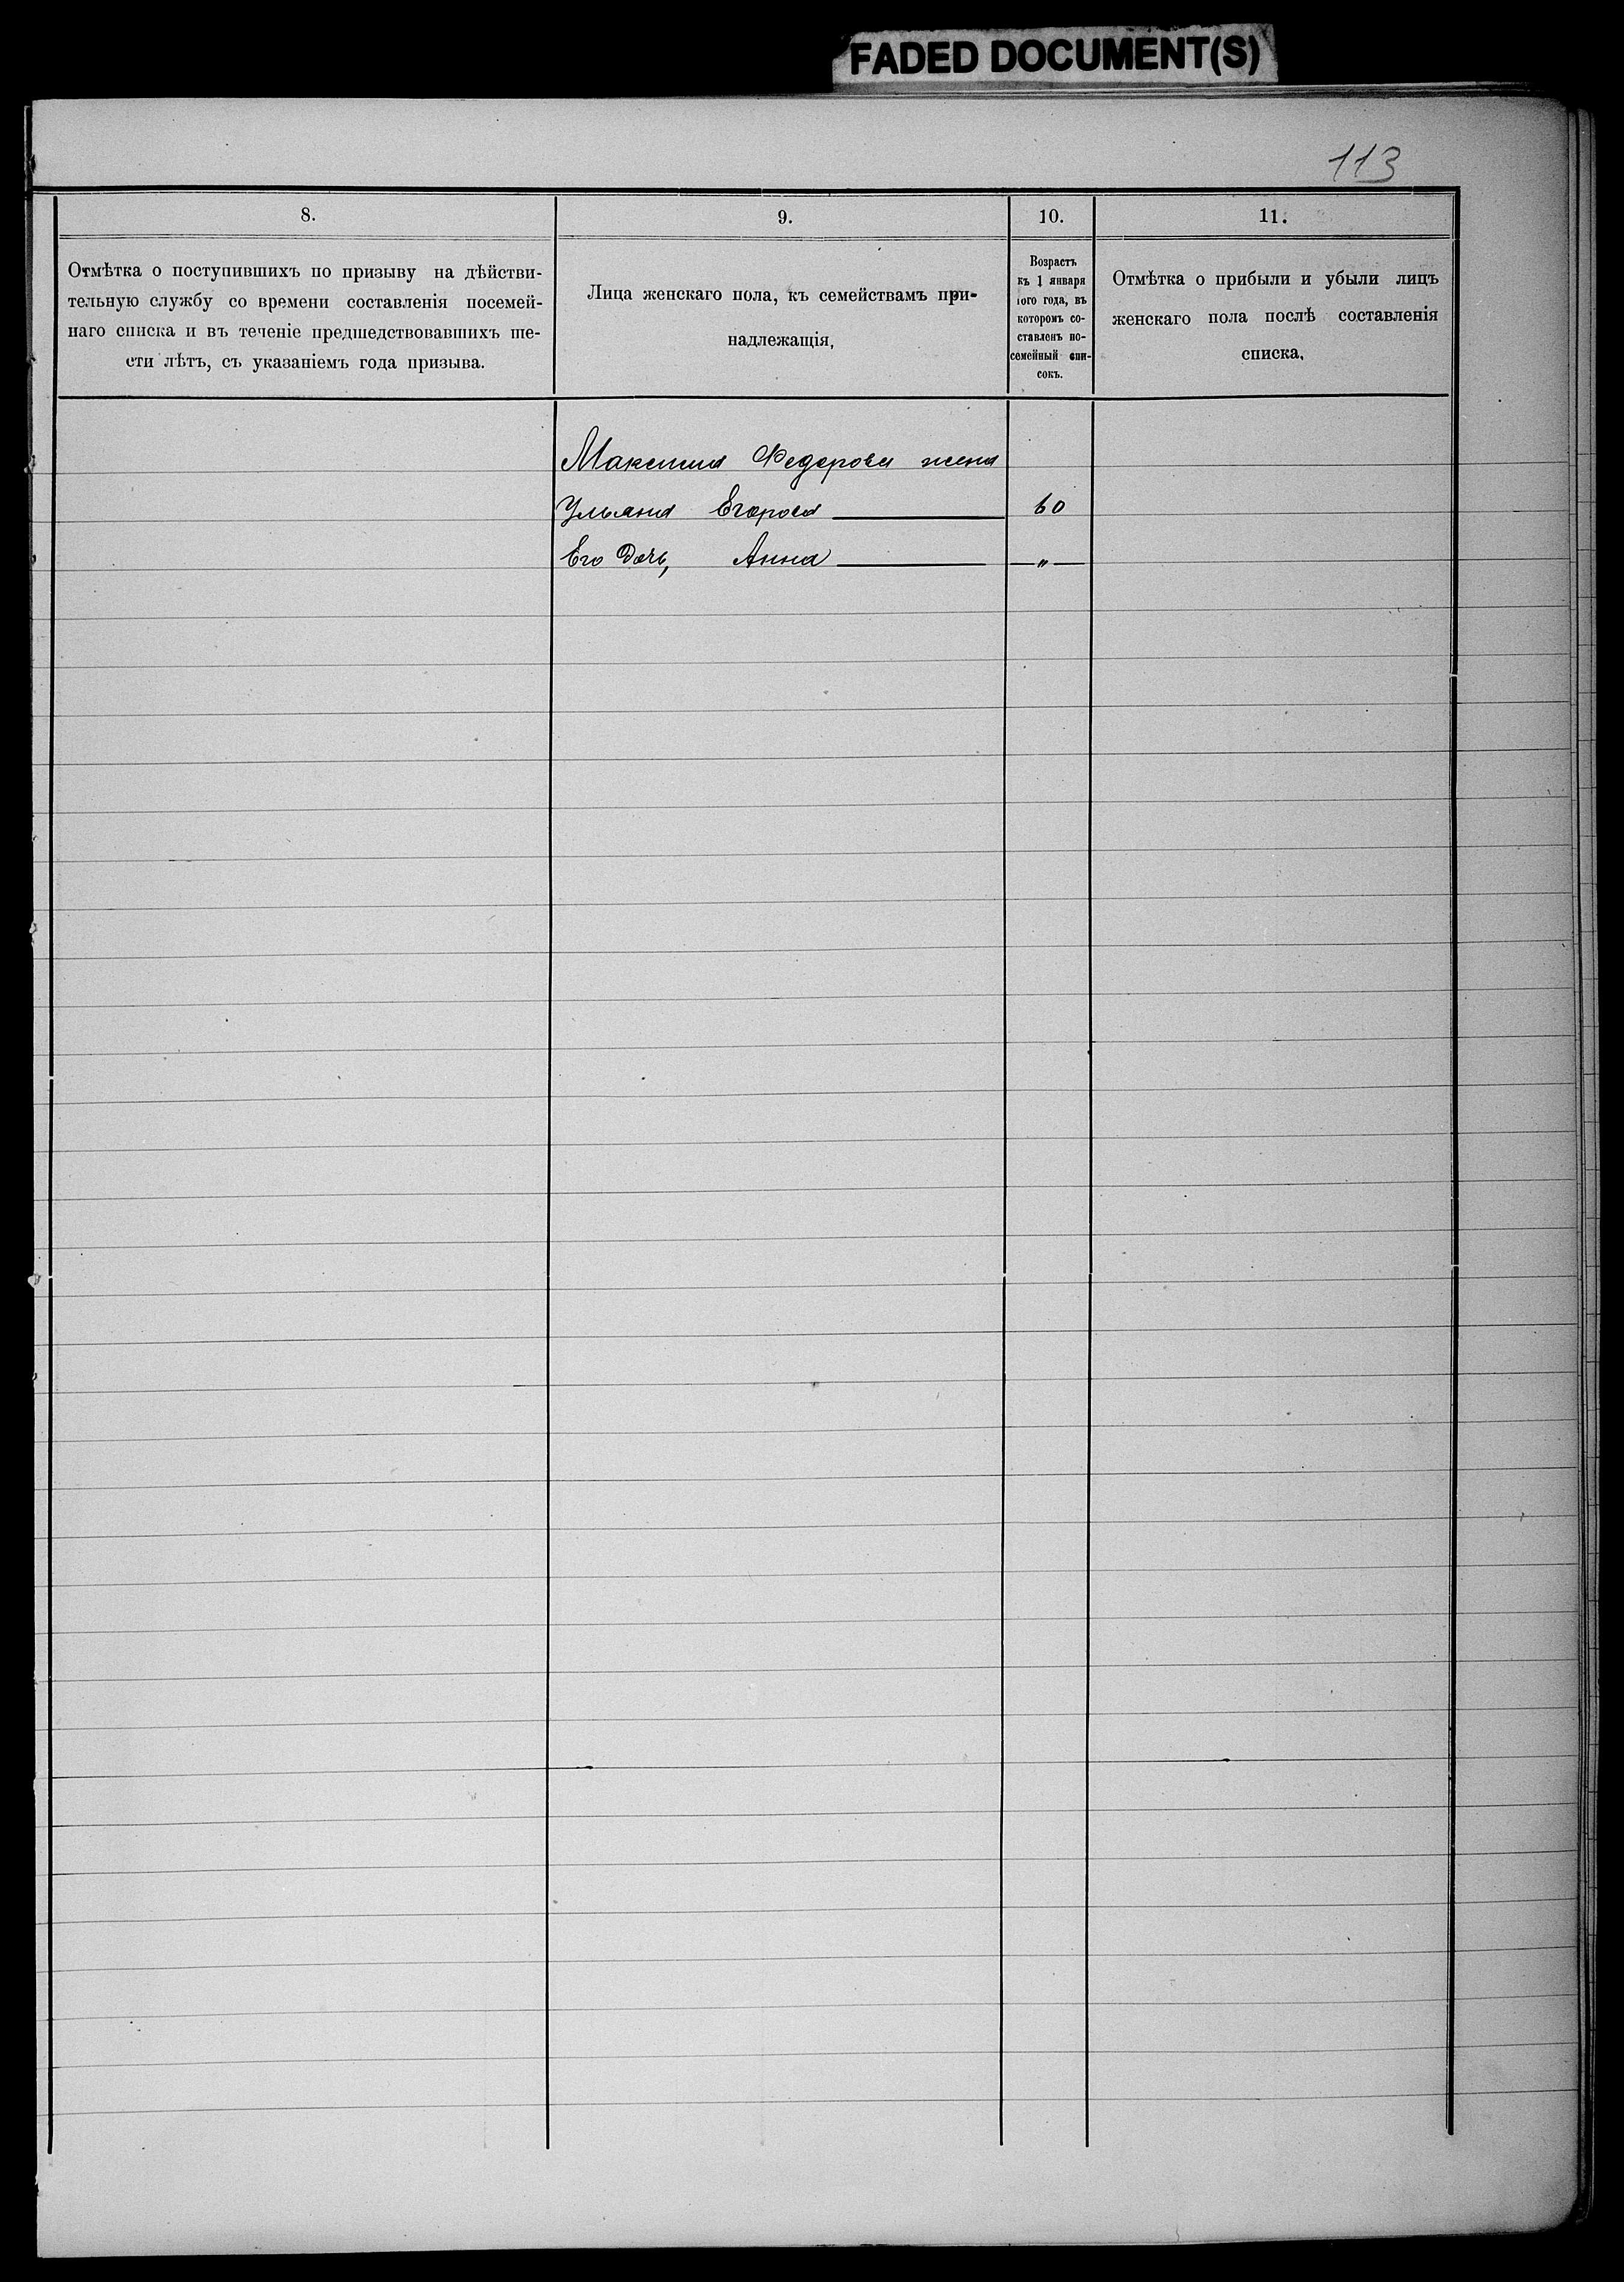 FADED DOCUMENT(S)
113
8.
9.
10.
11.
Отмѣтка о поступившихъ по призыву на дѣйстви-
тельную службу со времени составленія посемей-
наго списка и въ теченіе предшедствовавшихъ ше-
сти лѣтъ, съ указаніемъ года призыва.
Лица женскаго пола, къ семействамъ при-
надлежащія,
Возрастъ
къ 1 января
того года, въ
которомъ со-
ставленъ по-
семейный спи-
сокъ.
Отмѣтка о прибыли и убыли лицъ
женскаго пола послѣ составленія
списка,
Максима Федорова жена
Ульяна Егорова 60
Его Дочь, Анна — „ —